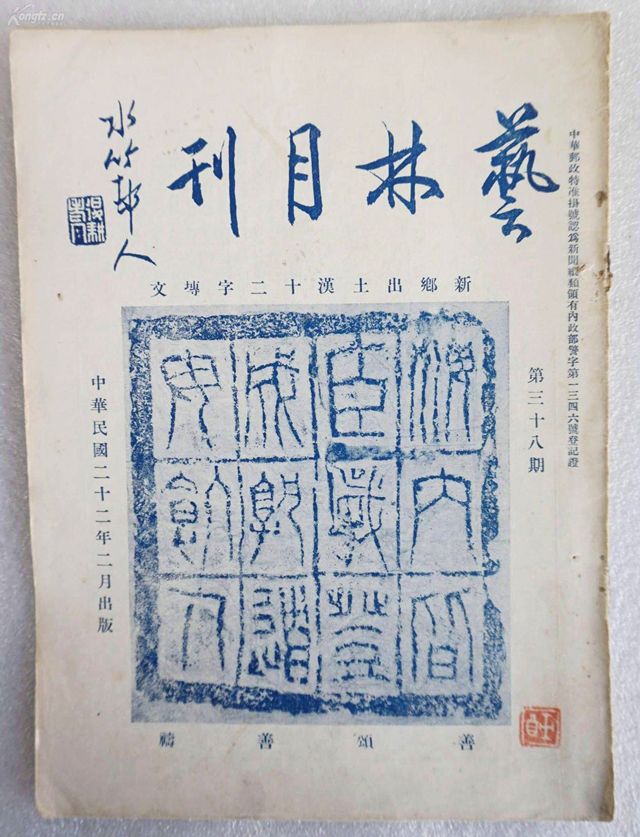 Kongfz.cn
中華郵政特准掛號認爲新聞紙類領有內政部警字第一三四六號登記證
藝林月刊
水竹邨人
新鄉出土漢十二字塼文
第三十八期
海內皆
臣歲登
成孰道
毋飢人
中華民國二十二年二月出版
善頌善禱